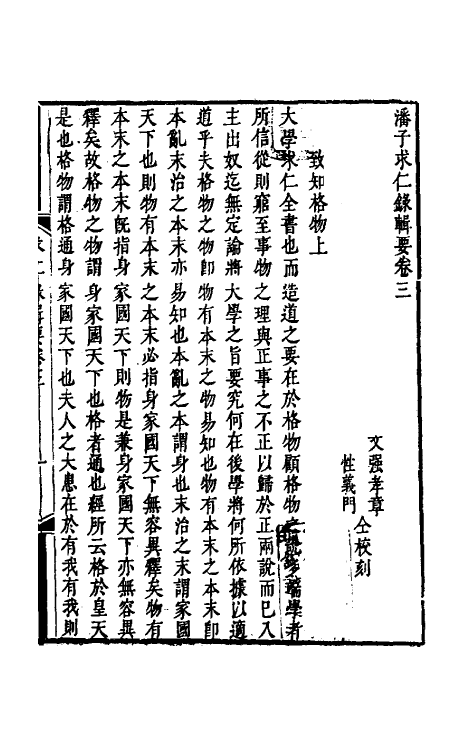 潘子求仁錄輯要卷三
文强孝章
性義門
仝校刻
致知格物上
大學求仁全書也而造道之要在於格物顧格物之說多端學者
所信從則窮至事物之理與正事之不正以歸於正兩說而已入
主出奴迄無定論將大學之旨要究何在後學將何所依據以適
道乎夫格物之物卽物有本末之物易知也物有本末之本末卽
本亂末治之本末亦易知也本亂之本謂身也末治之末謂家國
天下也則物有本末之本末必指身家國天下無容異釋矣物有
本末之本末旣指身家國天下則物是兼身家國天下亦無容異
釋矣故格物之物謂身家國天下也格者通也經所云格於皇天
是也格物謂格通身家國天下也夫人之大患在於有我有我則